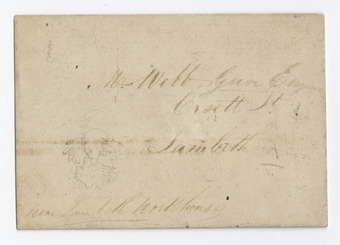 Mr Webb Gun Engr
Orsett St
Lambeth
near Lambeth Workhouse